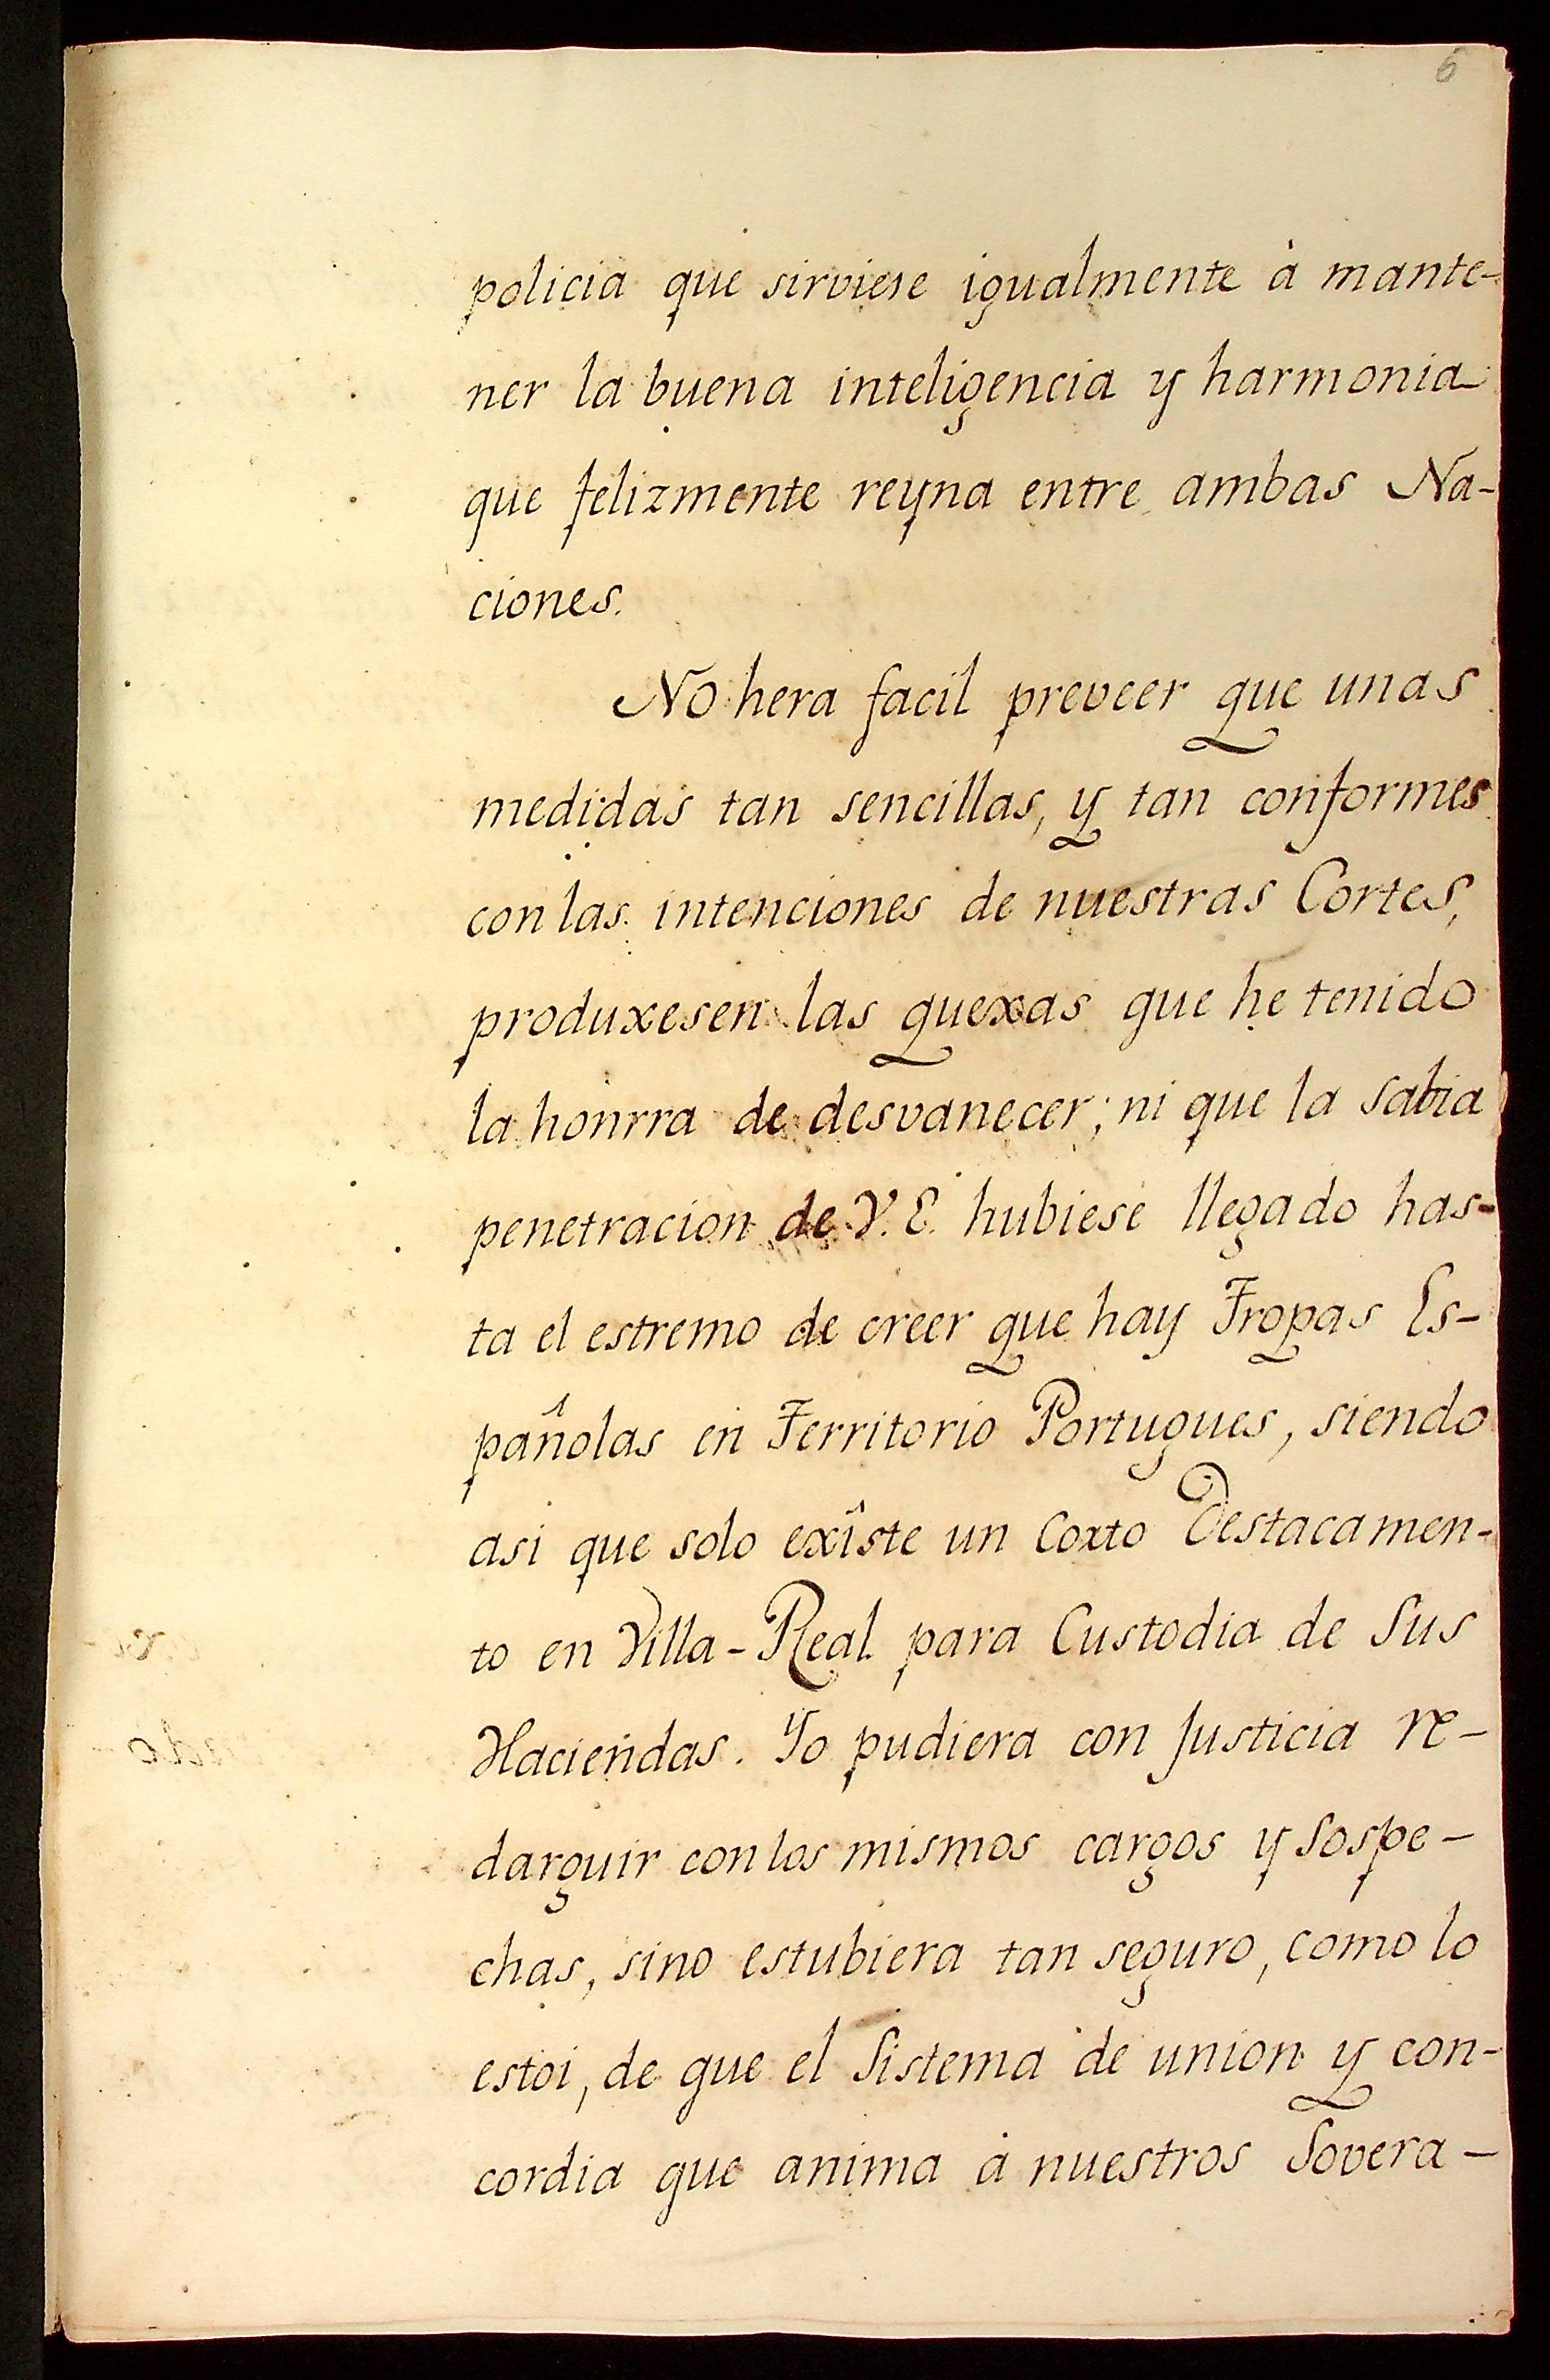 6
policia que sirviese igualmente à mante-
ner la buena inteligencia y harmonia
que felizmente reyna entre ambas Na-
ciones.
No hera facil preveer que unas
medidas tan sencillas, y tan conformes
con las intenciones de nuestras Cortes,
produxesen las quexas que he tenido
la honrra de desvanecer; ni que la sabia
penetracion de V. E. hubiese llegado has-
ta el estremo de creer que hay Tropas Es-
pañolas en Territorio Portugues, siendo
asi que solo exîste un Corto Destacamen-
to en Villa-Real para Custodia de Sus
Haciendas. Yo pudiera con Justicia re-
darguir con los mismos cargos y Sospe-
chas, sino estubiera tan seguro, como lo
estoi, de que el Sistema de union y con-
cordia que anima à nuestros Sovera-